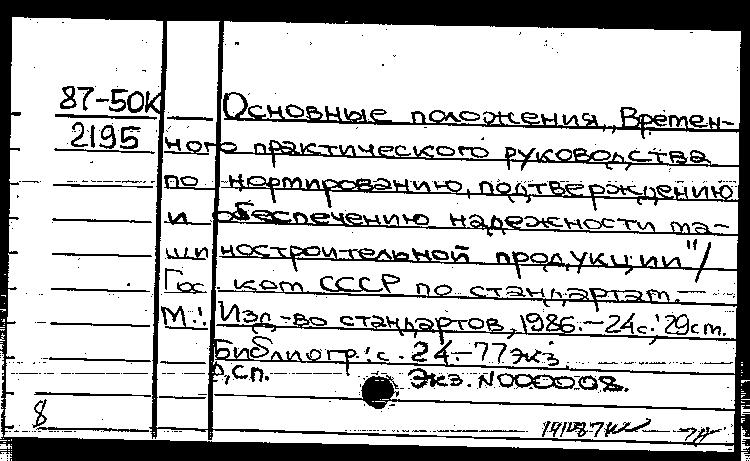 87-50К Основные положения „Времен-
2195 ного практического руководства
по нормированию, подтверждению
и обеспечению надежности ма-
шиностроительной продукции"/
Гос. ком СССР по стандартам.—
М.: Изд-во стандартов, 1986.—24с.; 29см.
Библиогр.: с. 24.—77экз.
Экз. N000002.
8